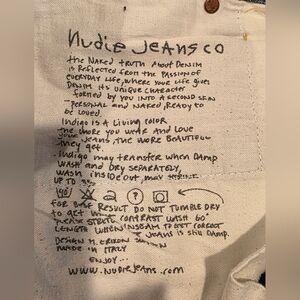 Nudie Jeans co
the Naked truth About DENIM
is Reflected from the Passion of
EVERYDAY LIFE, where YOUR LIFE gives
DENIM its UNIQUE CHARACTER
formed by you into A second skin
- personal and Naked, Ready to
be loved.
Indigo is A Living color
- the more you wear and Love
your Jeans, the more Beautiful
they get.
- Indigo may transfer when Damp
wash and dry separately,
wash inside out, may
up to
for Best Result Do Not tumble DRY
to get contrast wash 60°
please stretc
Length when inseam to get correct
Jeans is still Damp.
Design M. Erixon
MADE IN ITALY
ENJOY...
www.NudieJeans.com